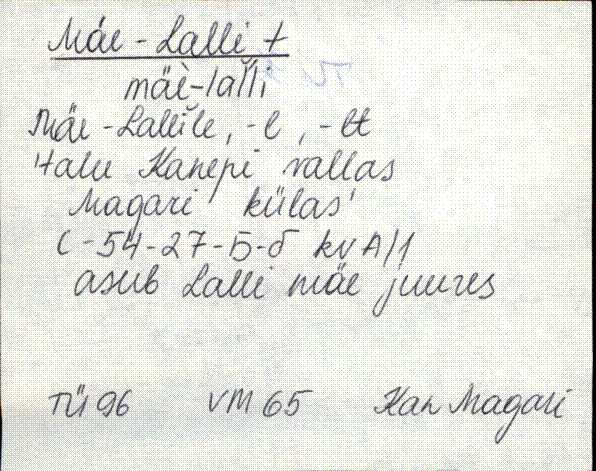 Mäe-Lalli +
mäè-lal̆li
Mäe-Lallile, -l, -lt
talu Kanepi vallas
Magari külas
C-54-27-Б-б kv A/1
asub Lalli mäe juures
TÜ 96 VM 65 Kan Magari